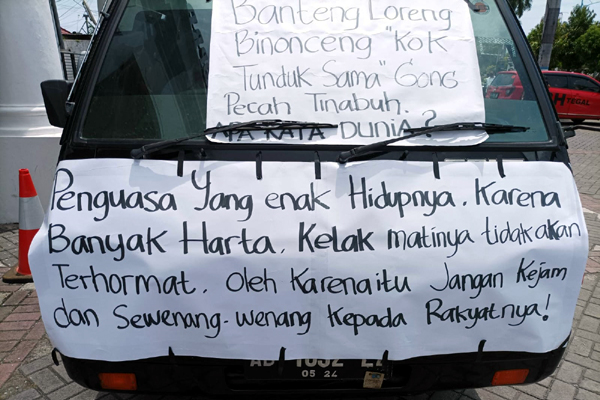 Banteng Loreng
Binonceng "Kok
Tunduk Sama" Gong
Pecah Tinabuh.
APA KATA DUNIA?
Penguasa Yang enak Hidupnya. Karena
Banyak Harta. Kelak matinya tidak akan
Terhormat. Oleh Karena itu Jangan Kejam
dan Sewenang-wenang Kepada Rakyatnya!
05 24
TEGAL